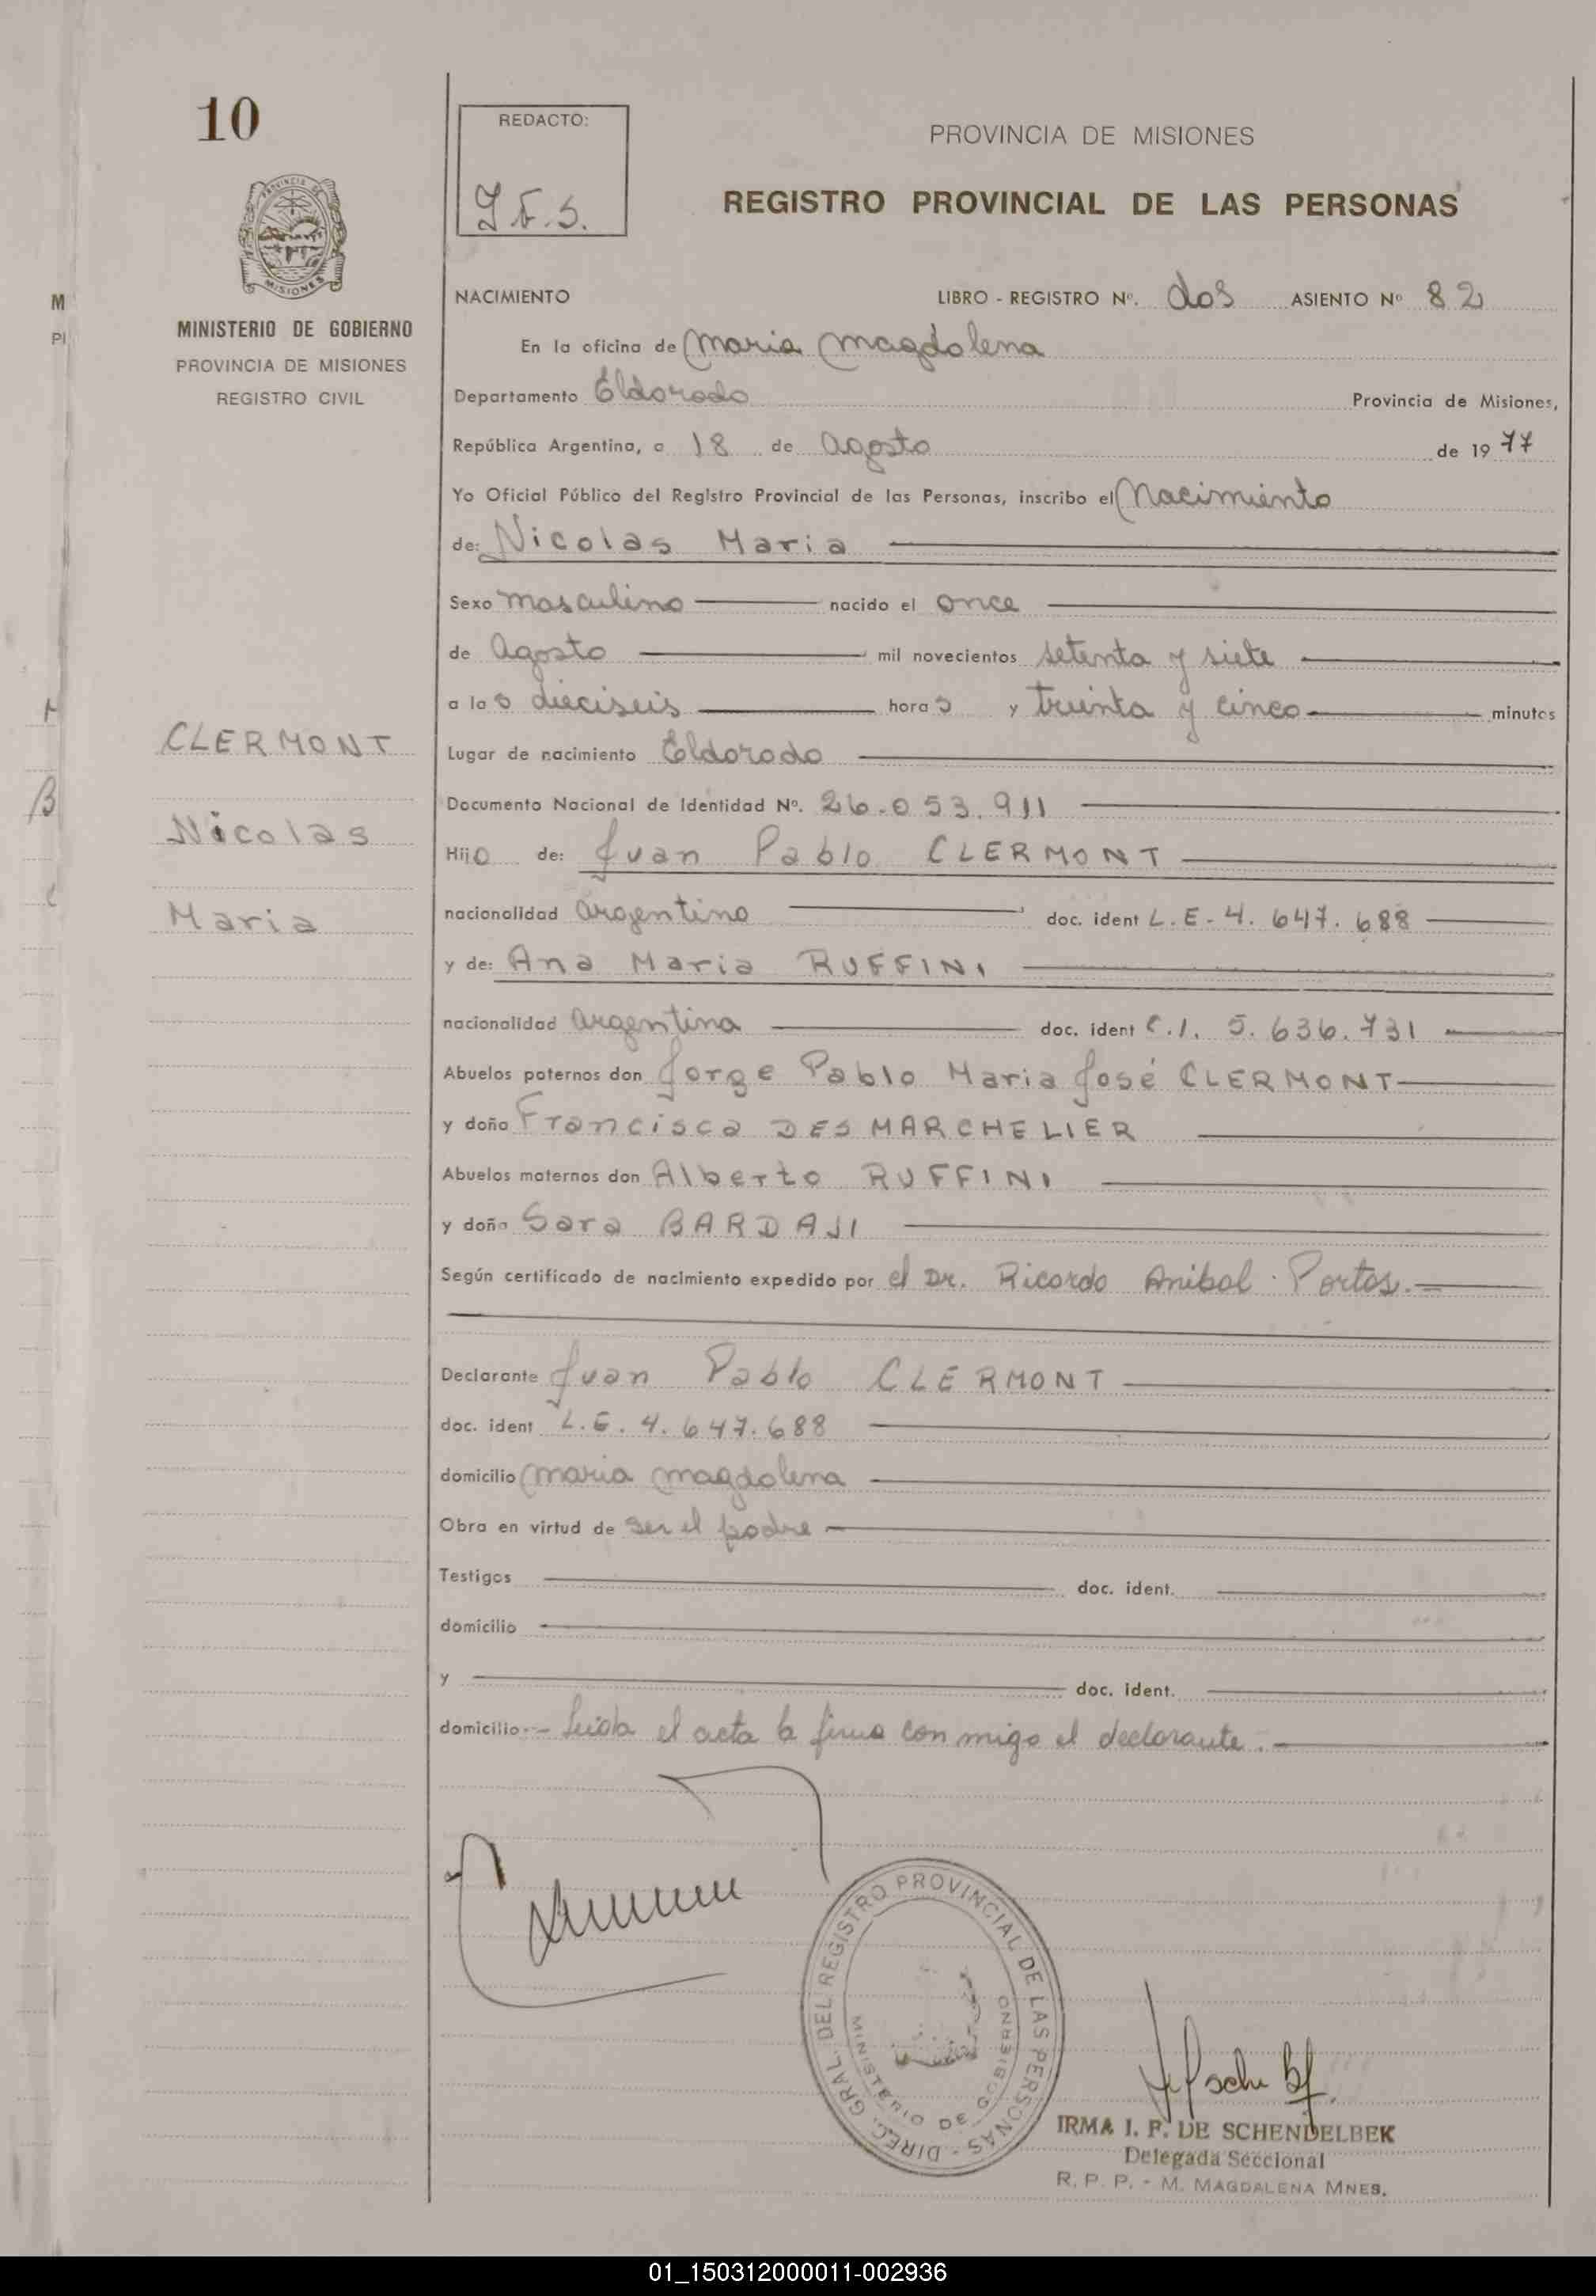 10
REDACTO:
PROVINCIA DE MISIONES
REGISTRO PROVINCIAL DE LAS PERSONAS
MINISTERIO DE GOBIERNO
PROVINCIA DE MISIONES
REGISTRO CIVIL
NACIMIENTO LIBRO - REGISTRO Nº. dos ASIENTO Nº 82
En la oficina de Maria Magdalena
Departamento Eldorado Provincia de Misiones,
República Argentina, a 18 de Agosto de 1977
Yo Oficial Público del Registro Provincial de las Personas, inscribo el Nacimiento
de: Nicolas Maria
Sexo masculino nacido el once
de Agosto mil novecientos setenta y siete
a las dieciseis horas y treinta y cinco minutos
CLERMONT
Lugar de nacimiento Eldorado
Documento Nacional de Identidad Nº. 26.053.911
Nicolas
Hijo de: Juan Pablo CLERMONT
Maria
nacionalidad argentino doc. ident L.E-4.647.688
y de: Ana Maria RUFFINI
nacionalidad argentina doc. ident C.I. 5.636.731
Abuelos paternos don Jorge Pablo Maria José CLERMONT
y doña Francisca DES MARCHELIER
Abuelos maternos don Alberto RUFFINI
y doña Sara BARDAJI
Según certificado de nacimiento expedido por el Dr. Ricardo Anibal Portas.
Declarante Juan Pablo CLERMONT
doc. ident L.E. 4.647.688
domicilio Maria Magdalena
Obra en virtud de ser el padre
Testigos doc. ident.
domicilio
y doc. ident.
domicilio Leida el acta la firma con migo el declarante.
DIREC. GRAL. DEL REGISTRO PROVINCIAL DE LAS PERSONAS -
MINISTERIO DE GOBIERNO
IRMA I. F. DE SCHENDELBEK
Delegada Seccional
R. P. P. - M. MAGDALENA MNES.
01_150312000011-002936